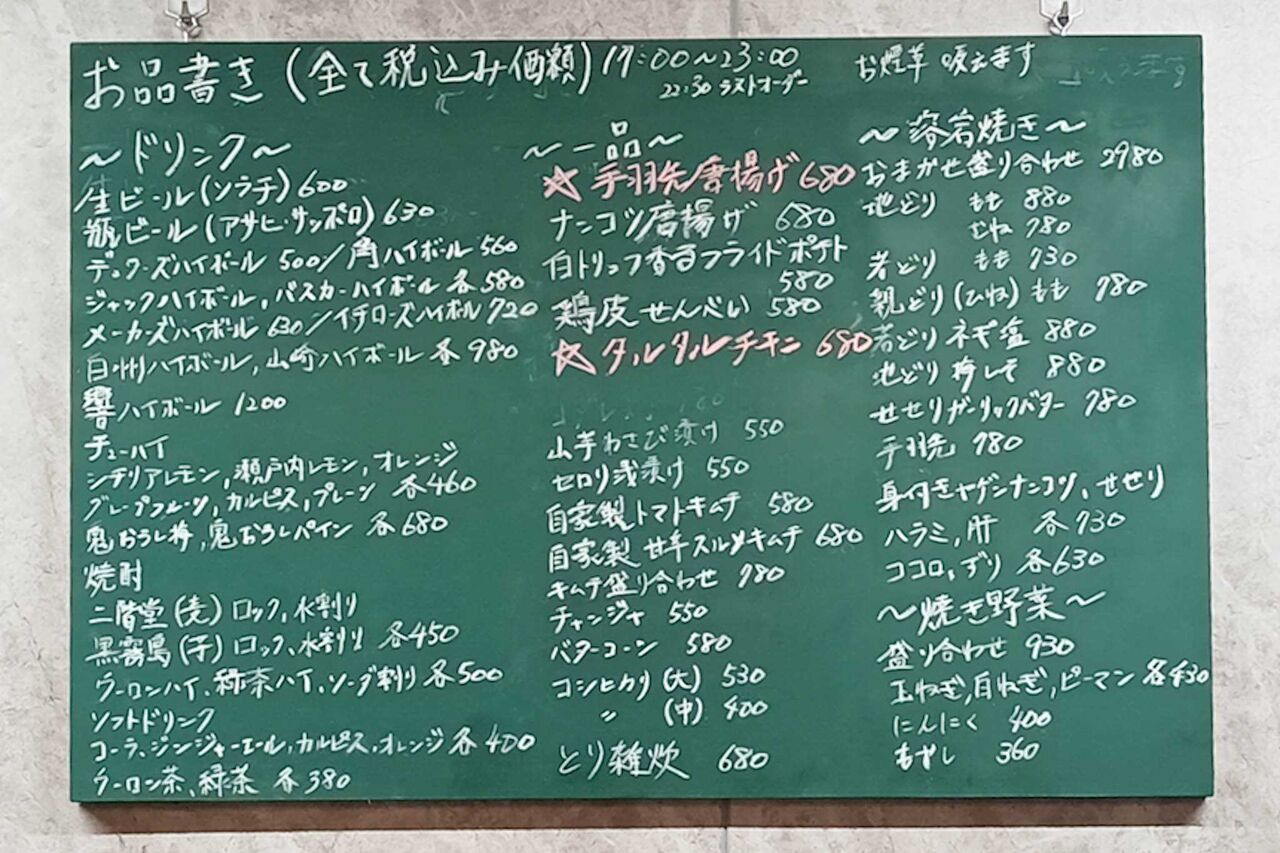 お品書き(全て税込み価額) 17:00〜23:00
22:30 ラストオーダー
お煙草 吸えます
〜ドリンク〜
生ビール(ソラチ) 600
瓶ビール(アサヒ・サッポロ) 630
デュワーズハイボール 500/角ハイボール 560
ジャックハイボール,バスカーハイボール 各580
メーカーズハイボール 630/イチローズハイボール 720
白州ハイボール,山崎ハイボール 各980
響ハイボール 1200
チューハイ
シチリアレモン,瀬戸内レモン,オレンジ
グレープフルーツ,カルピス,プレーン 各460
鬼おろし梅,鬼おろしパイン 各680
焼酎
二階堂(麦)ロック,水割り
黒霧島(芋)ロック,水割り 各450
ウーロンハイ,緑茶ハイ,ソーダ割り 各500
ソフトドリンク
コーラ,ジンジャーエール,カルピス,オレンジ 各400
ウーロン茶,緑茶 各380
〜一品〜
☆手羽先唐揚げ 680
ナンコツ唐揚げ 680
白トリュフ香るフライドポテト
580
鶏皮せんべい 580
☆タルタルチキン 680
山芋わさび漬け 550
セロリ浅漬け 550
自家製トマトキムチ 580
自家製 甘辛スルメキムチ 680
キムチ盛り合わせ 780
チャンジャ 550
バターコーン 580
コシヒカリ(大) 530
〃 (中) 400
とり雑炊 680
〜溶岩焼き〜
おまかせ盛り合わせ 2980
地どり もも 880
むね 780
若どり もも 730
親どり(ひね)もも 780
若どり ネギ塩 880
地どり 梅しそ 880
せせりガーリックバター 780
手羽先 780
身付きヤゲンナンコツ,せせり
ハラミ,肝 各730
ココロ,ずり 各630
〜焼き野菜〜
盛り合わせ 930
玉ねぎ,白ねぎ,ピーマン 各430
にんにく 400
もやし 360